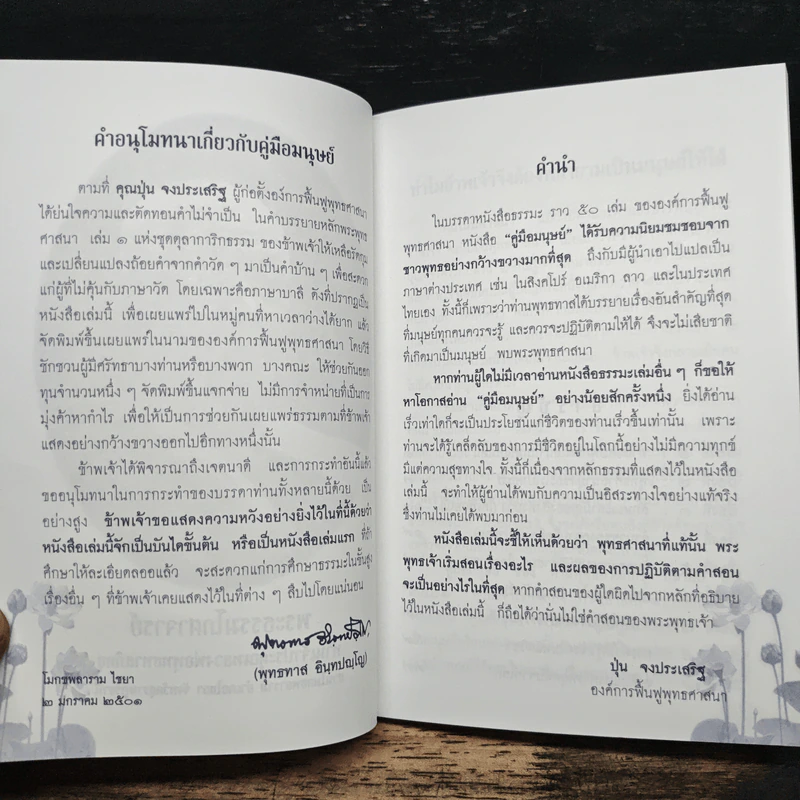 คำอนุโมทนาเกี่ยวกับคู่มือมนุษย์
ตามที่ คุณปุ่น จงประเสริฐ ผู้ก่อตั้งองค์การฟื้นฟูพุทธศาสนา
ได้ย่นใจความและตัดทอนคำไม่จำเป็น ในคำบรรยายหลักพระพุทธ
ศาสนา เล่ม ๑ แห่งชุดตุลาการิกธรรม ของข้าพเจ้าให้เหลือรัดกุม
และเปลี่ยนแปลงถ้อยคำจากคำวัด ๆ มาเป็นคำบ้าน ๆ เพื่อสะดวก
แก่ผู้ที่ไม่คุ้นกับภาษาวัด โดยเฉพาะคือภาษาบาลี ดังที่ปรากฏเป็น
หนังสือเล่มนี้ เพื่อเผยแพร่ไปในหมู่คนที่หาเวลาว่างได้ยาก แล้ว
จัดพิมพ์ขึ้นเผยแพร่ในนามขององค์การฟื้นฟูพุทธศาสนา โดยวิธี
ชักชวนผู้มีศรัทธาบางท่านหรือบางพวก บางคณะ ให้ช่วยกันออก
ทุนจำนวนหนึ่ง ๆ จัดพิมพ์ขึ้นแจกจ่าย ไม่มีการจำหน่ายที่เป็นการ
มุ่งค้าหากำไร เพื่อให้เป็นการช่วยกันเผยแพร่ธรรมตามที่ข้าพเจ้า
แสดงอย่างกว้างขวางออกไปอีกทางหนึ่งนั้น
ข้าพเจ้าได้พิจารณาถึงเจตนาดี และการกระทำอันนี้แล้ว
ขออนุโมทนาในการกระทำของบรรดาท่านทั้งหลายนี้ด้วย เป็น
อย่างสูง ข้าพเจ้าขอแสดงความหวังอย่างยิ่งไว้ในที่นี้ด้วยว่า
หนังสือเล่มนี้จักเป็นบันไดขั้นต้น หรือเป็นหนังสือเล่มแรก ที่ถ้า
ศึกษาให้ละเอียดลออแล้ว จะสะดวกแก่การศึกษาธรรมะในขั้นสูง
เรื่องอื่น ๆ ที่ข้าพเจ้าเคยแสดงไว้ในที่ต่าง ๆ สืบไปโดยแน่นอน
พุทธทาส อินฺทปญฺโญ
(พุทธทาส อินฺทปญฺโญ)
โมกขพลาราม ไชยา
๒ มกราคม ๒๕๐๑
คำนำ
ในบรรดาหนังสือธรรมะ ราว ๕๐ เล่ม ขององค์การฟื้นฟู
พุทธศาสนา หนังสือ “คู่มือมนุษย์” ได้รับความนิยมชมชอบจาก
ชาวพุทธอย่างกว้างขวางมากที่สุด ถึงกับมีผู้นำเอาไปแปลเป็น
ภาษาต่างประเทศ เช่น ในสิงคโปร์ อเมริกา ลาว และในประเทศ
ไทยเอง ทั้งนี้ก็เพราะว่าท่านพุทธทาสได้บรรยายเรื่องอันสำคัญที่สุด
ที่มนุษย์ทุกคนควรจะรู้ และควรจะปฏิบัติตามให้ได้ จึงจะไม่เสียชาติ
ที่เกิดมาเป็นมนุษย์ พบพระพุทธศาสนา
หากท่านผู้ใดไม่มีเวลาอ่านหนังสือธรรมะเล่มอื่น ๆ ก็ขอให้
หาโอกาสอ่าน “คู่มือมนุษย์” อย่างน้อยสักครั้งหนึ่ง ยิ่งได้อ่าน
เร็วเท่าใดก็จะเป็นประโยชน์แก่ชีวิตของท่านเร็วขึ้นเท่านั้น เพราะ
ท่านจะได้รู้เคล็ดลับของการมีชีวิตอยู่ในโลกนี้อย่างไม่มีความทุกข์
มีแต่ความสุขทางใจ. ทั้งนี้ก็เนื่องจากหลักธรรมที่แสดงไว้ในหนังสือ
เล่มนี้ จะทำให้ผู้อ่านได้พบกับความเป็นอิสระทางใจอย่างแท้จริง
ซึ่งท่านไม่เคยได้พบมาก่อน
หนังสือเล่มนี้จะชี้ให้เห็นด้วยว่า พุทธศาสนาที่แท้นั้น พระ
พุทธเจ้าเริ่มสอนเรื่องอะไร และผลของการปฏิบัติตามคำสอน
จะเป็นอย่างไรในที่สุด หากคำสอนของผู้ใดผิดไปจากหลักที่อธิบาย
ไว้ในหนังสือเล่มนี้ ก็ถือได้ว่านั่นไม่ใช่คำสอนของพระพุทธเจ้า
ปุ่น จงประเสริฐ
องค์การฟื้นฟูพุทธศาสนา